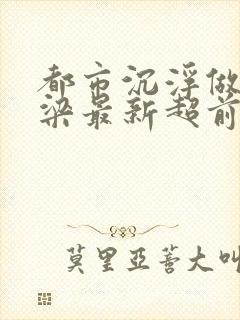 都市沉浮做
梁最新超前
莫里亚蒈大叫